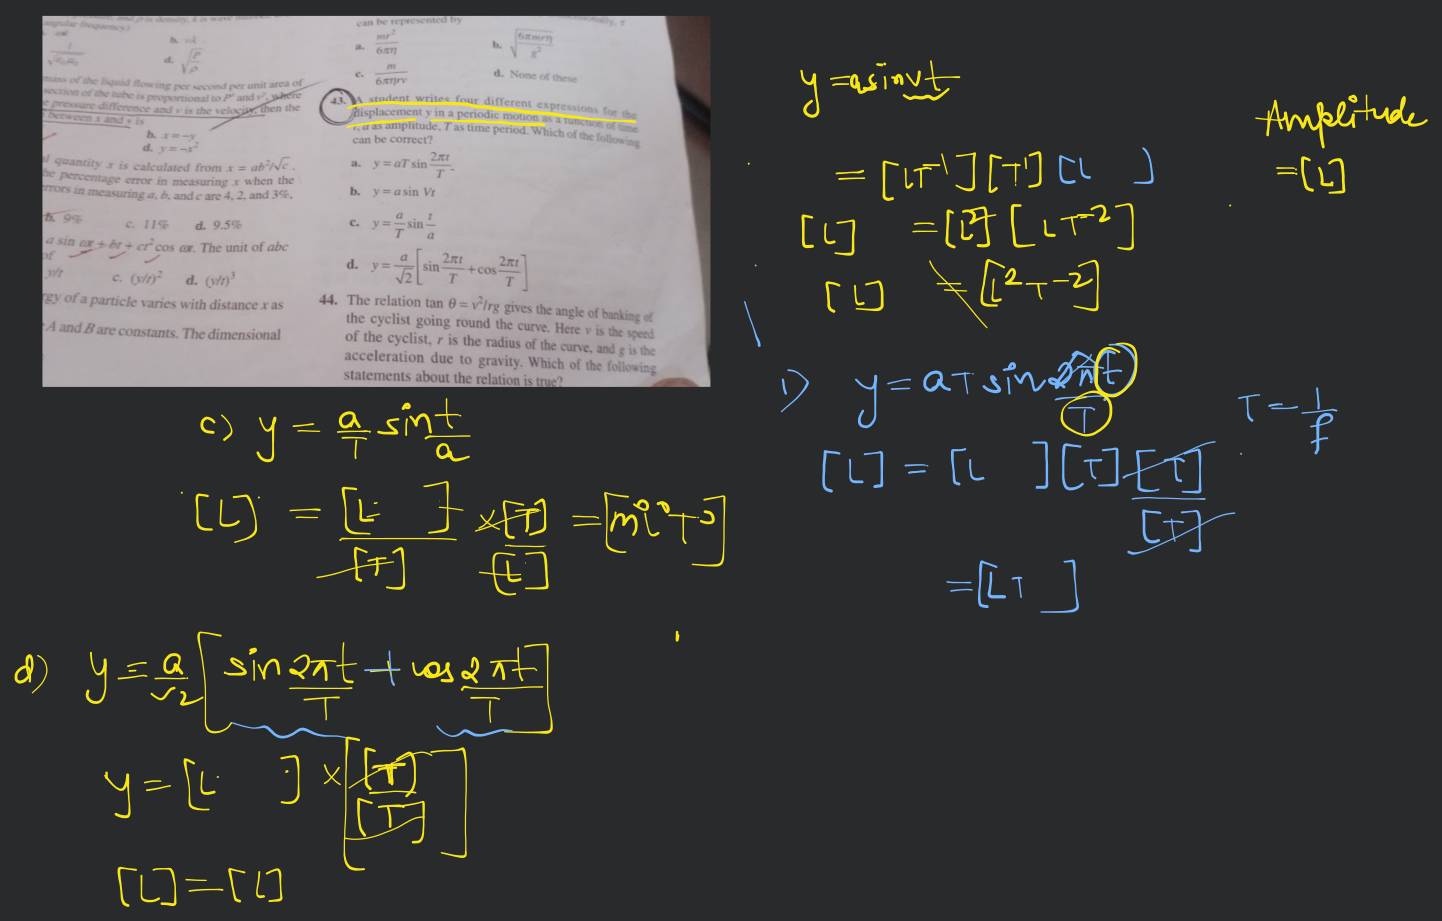 angular frequency)
b. vk
d. √P/ρ
mass of the liquid flowing per second per unit area of
section of the tube is proportional to Pˣ and vʸ, where
pressure difference and v is the velocity, then the
between x and y is
b. x = -y
d. y = -x²
quantity x is calculated from x = ab²/√c.
percentage error in measuring x when the
errors in measuring a, b, and c are 4, 2, and 3%,
b. 9% c. 11% d. 9.5%
a sin ax + bt + ct² cos ax. The unit of abc
of
y/t c. (y/t)² d. (y/t)³
rgy of a particle varies with distance x as
A and B are constants. The dimensional
can be represented by
a. mr²/6πη b.
c. m/6πηrv d. None of these
43. A student writes four different expressions for the
displacement y in a periodic motion as a function of time
t, a as amplitude, T as time period. Which of the following
can be correct?
a. y = aT sin 2πt/T.
b. y = a sin Vt
c. y = a/T sin t/a
d. y = a/√2 [sin 2πt/T + cos 2πt/T]
44. The relation tan θ = v²/rg gives the angle of banking of
the cyclist going round the curve. Here v is the speed
of the cyclist, r is the radius of the curve, and g is the
acceleration due to gravity. Which of the following
statements about the relation is true?
y = a sin vt
Amplitude
= [L]
= [LT⁻¹] [T¹] [L ]
[L] = [L²] [LT⁻²]
[L] = [L²T⁻²]
1) y = aT sin 2πt/T
T = 1/f
[L] = [L ] [T] [T]/[T]
= [LT ]
c) y = a/T sin t/a
[L] = [L ]/[T] × [T]/[L] = [m⁰L⁰T⁰]
d) y = a/√2 [sin 2πt/T + cos 2πt/T]
y = [L ] × [[T]/[T]]
[L] = [L]